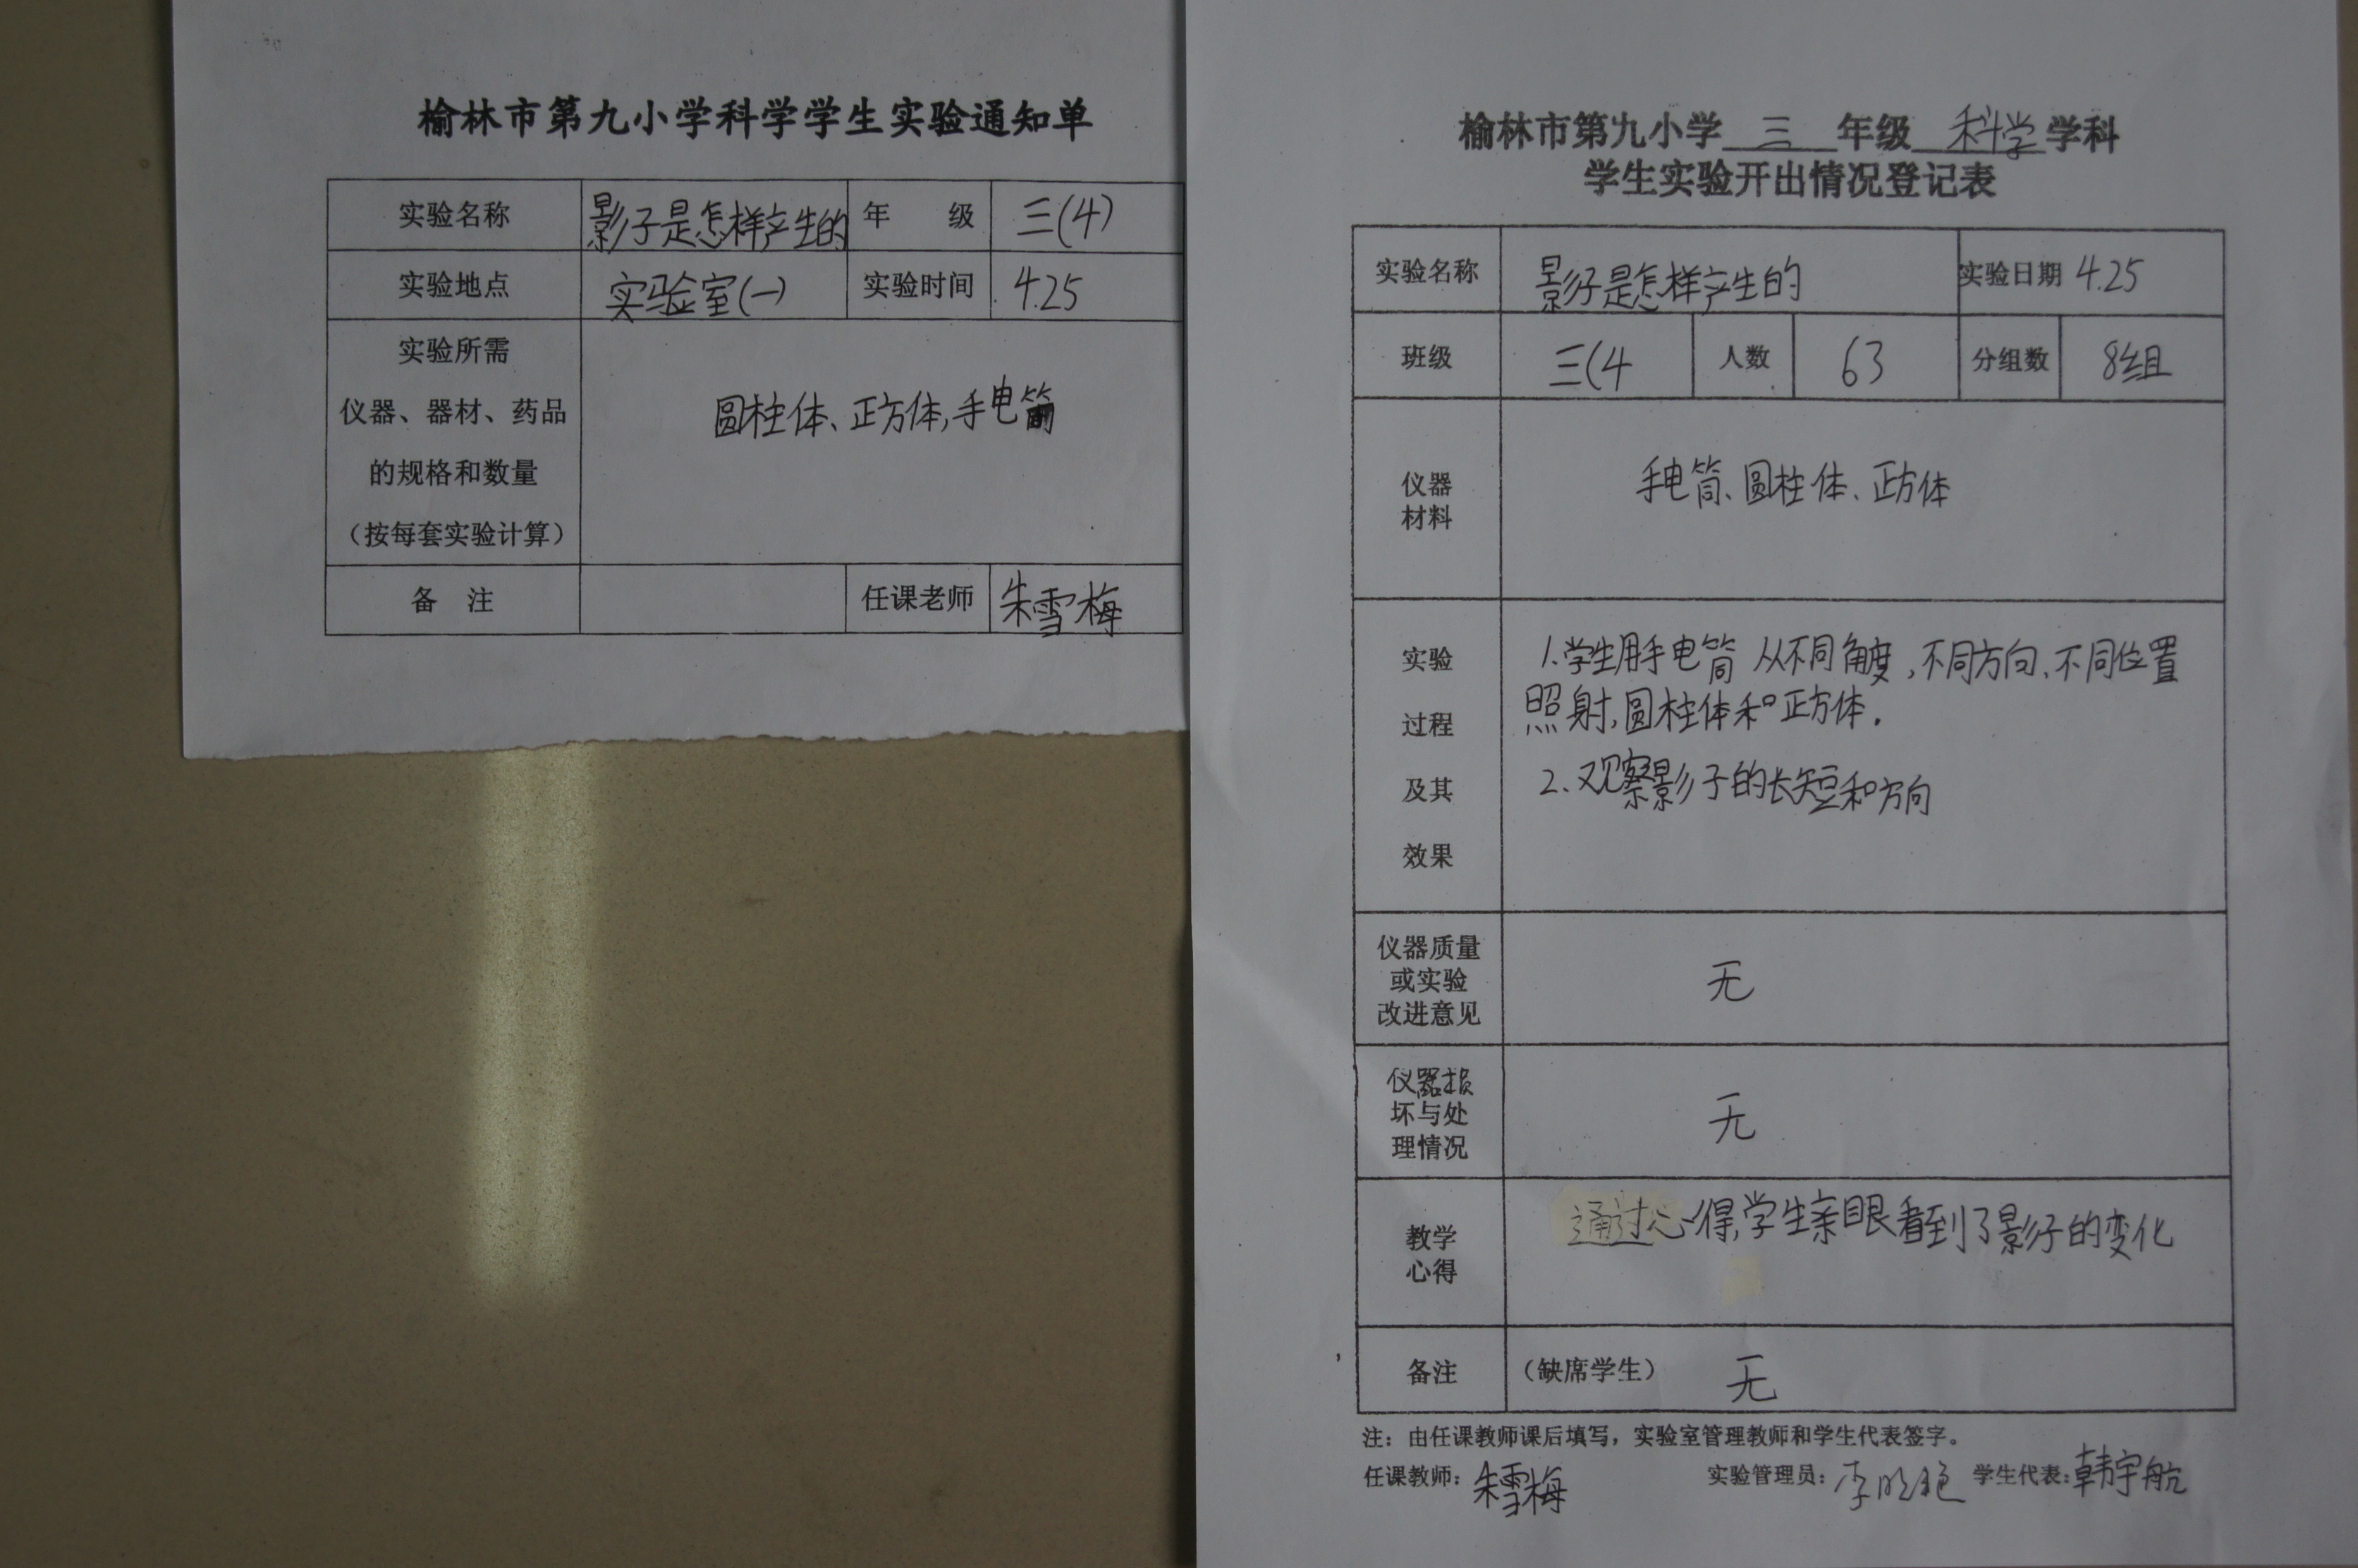 榆林市第九小学科学学生实验通知单
实验名称 影子是怎样产生的 年 级 三(4)
实验地点 实验室(一) 实验时间 4.25
实验所需
仪器、器材、药品
的规格和数量
(按每套实验计算)
圆柱体、正方体,手电筒
备 注 任课老师 朱雪梅
榆林市第九小学 三 年级 科学 学科
学生实验开出情况登记表
实验名称 影子是怎样产生的 实验日期 4.25
班级 三(4 人数 63 分组数 8组
仪器
材料
手电筒、圆柱体、正方体
实验
过程
及其
效果
1.学生用手电筒 从不同角度,不同方向、不同位置
照射,圆柱体和正方体.
2、观察影子的长短和方向
仪器质量
或实验
改进意见
无
仪器损
坏与处
理情况
无
教学
心得
通过心得,学生亲眼看到了影子的变化
备注 (缺席学生) 无
注:由任课教师课后填写,实验室管理教师和学生代表签字。
任课教师:朱雪梅 实验管理员:李 学生代表:韩宇航